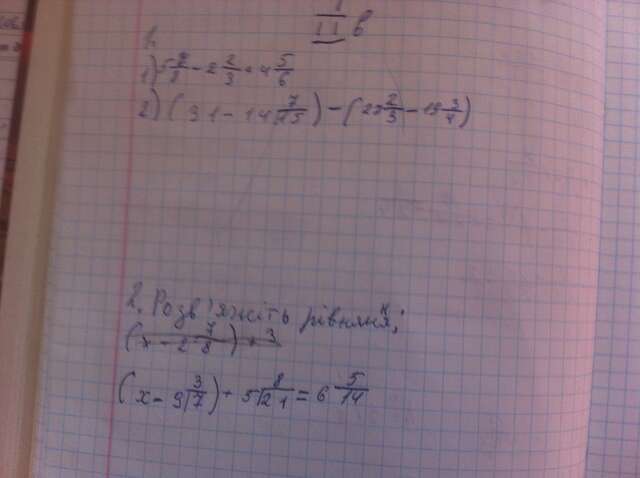 II в
1.
1) 5 7/8 - 2 2/3 + 4 5/6
2) (31 - 14 7/15) - (25 2/3 - 18 3/4)
2. Розв'яжіть рівняня;
н
(x - 2 7/8) + 3
(x - 9 3/7) + 5 8/21 = 6 5/14